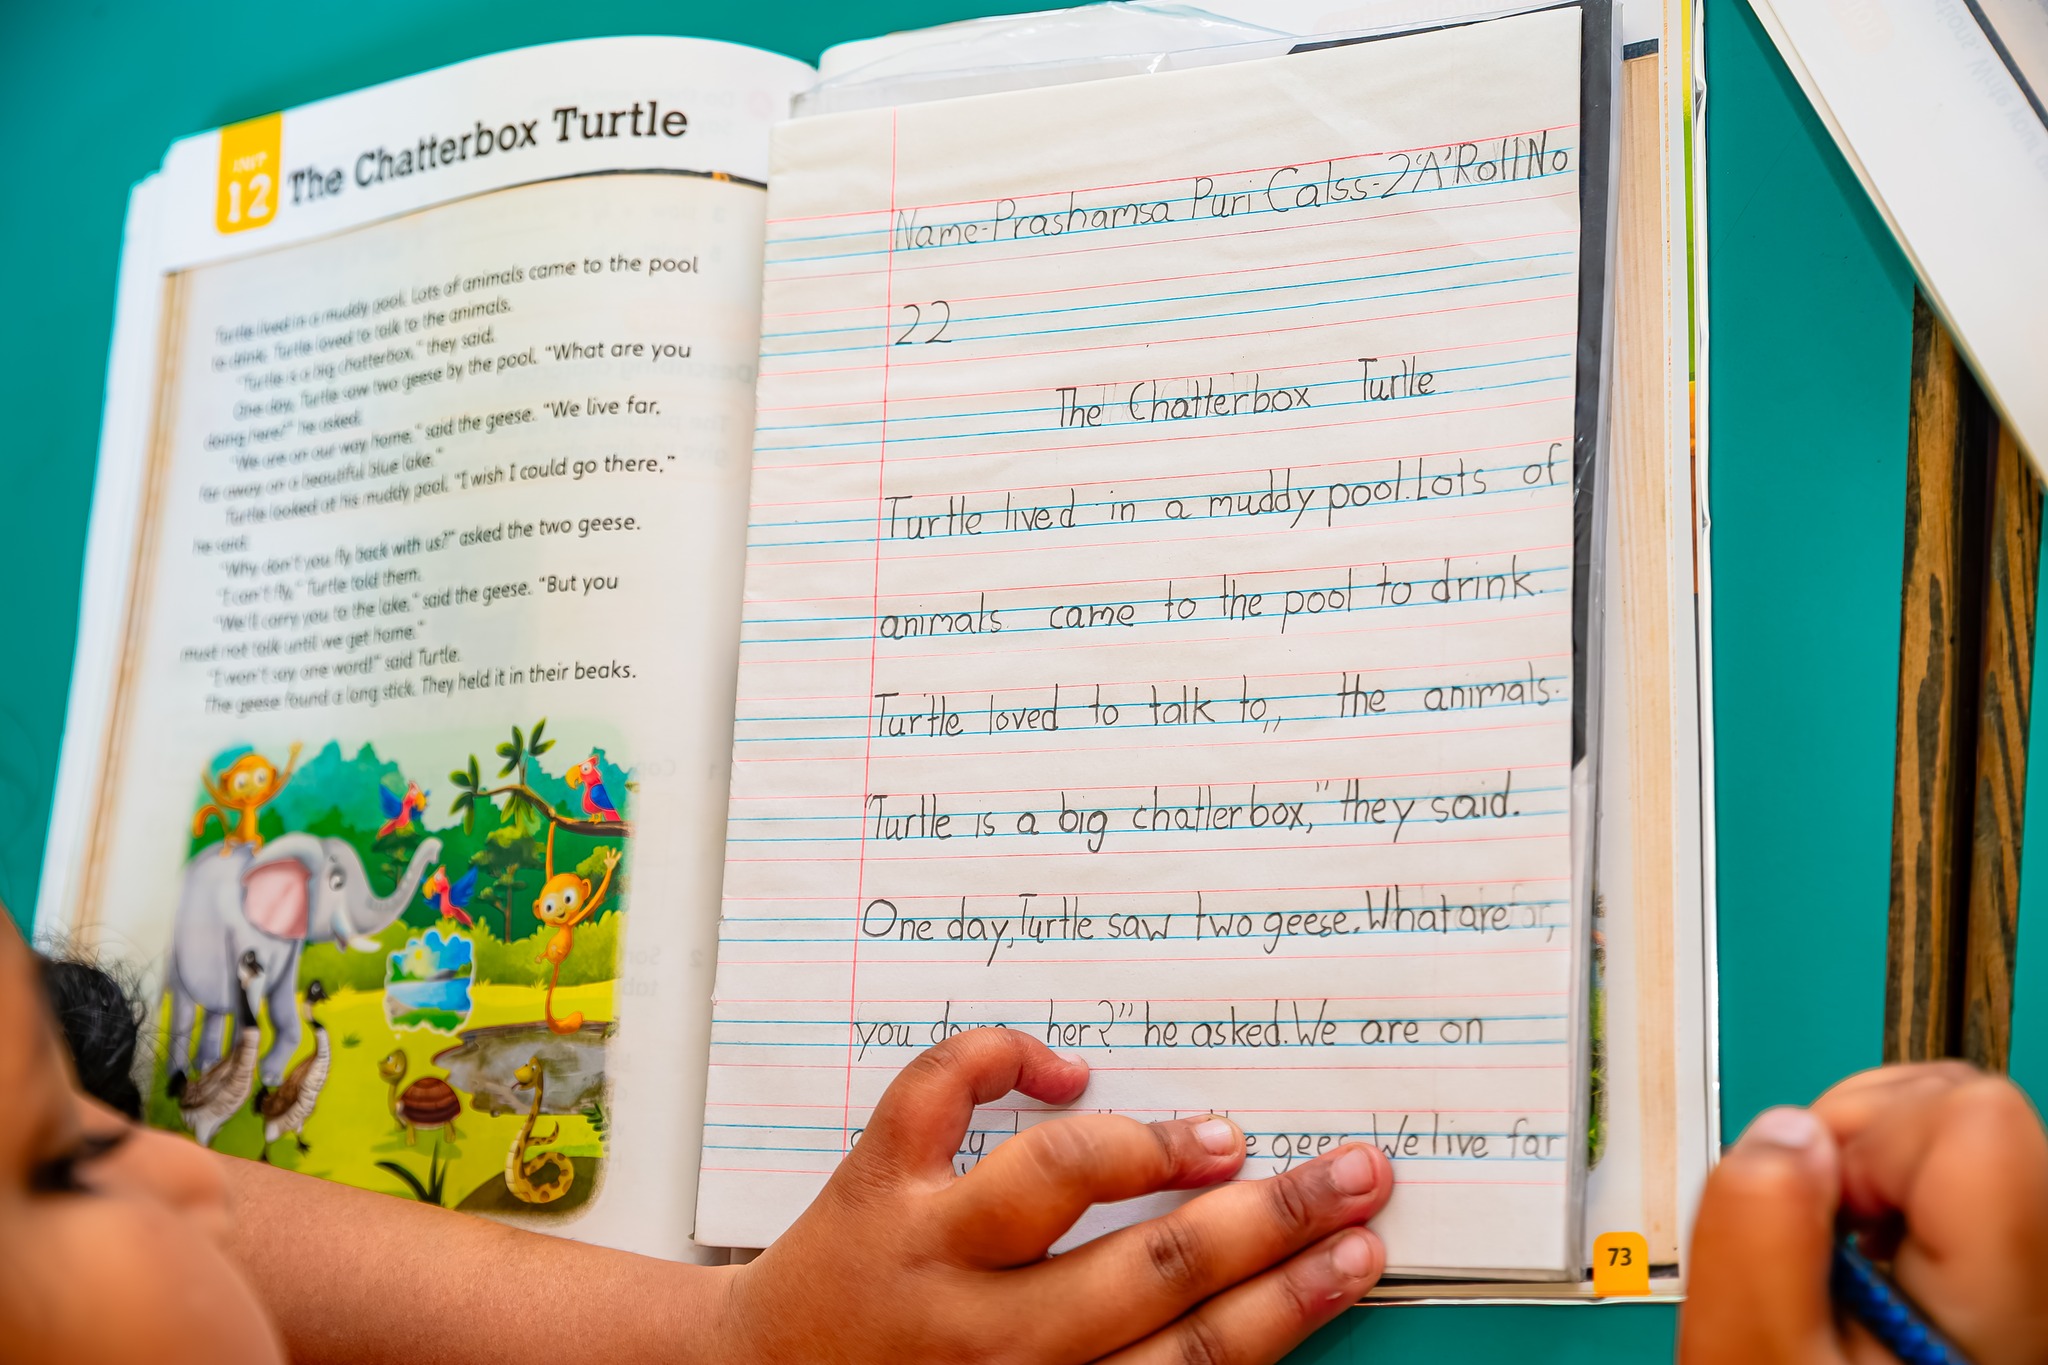 UNIT
12
The Chatterbox Turtle
Turtle lived in a muddy pool. Lots of animals came to the pool
to drink. Turtle loved to talk to the animals.
"Turtle is a big chatterbox," they said.
One day, Turtle saw two geese by the pool. "What are you
doing here?" he asked.
"We are on our way home," said the geese. "We live far,
far away on a beautiful blue lake."
Turtle looked at his muddy pool. "I wish I could go there,"
he said.
"Why don't you fly back with us?" asked the two geese.
"I can't fly," Turtle told them.
"We'll carry you to the lake," said the geese. "But you
must not talk until we get home."
"I won't say one word!" said Turtle.
The geese found a long stick. They held it in their beaks.
Name-Prashamsa Puri Calss-2'A'Roll No
22
The Chatterbox Turtle
Turtle lived in a muddy pool.Lots of
animals came to the pool to drink.
Turtle loved to talk to,, the animals.
"Turtle is a big chatterbox," they said.
One day,Turtle saw two geese.What are
you her?" he asked.We are on
We live far
73